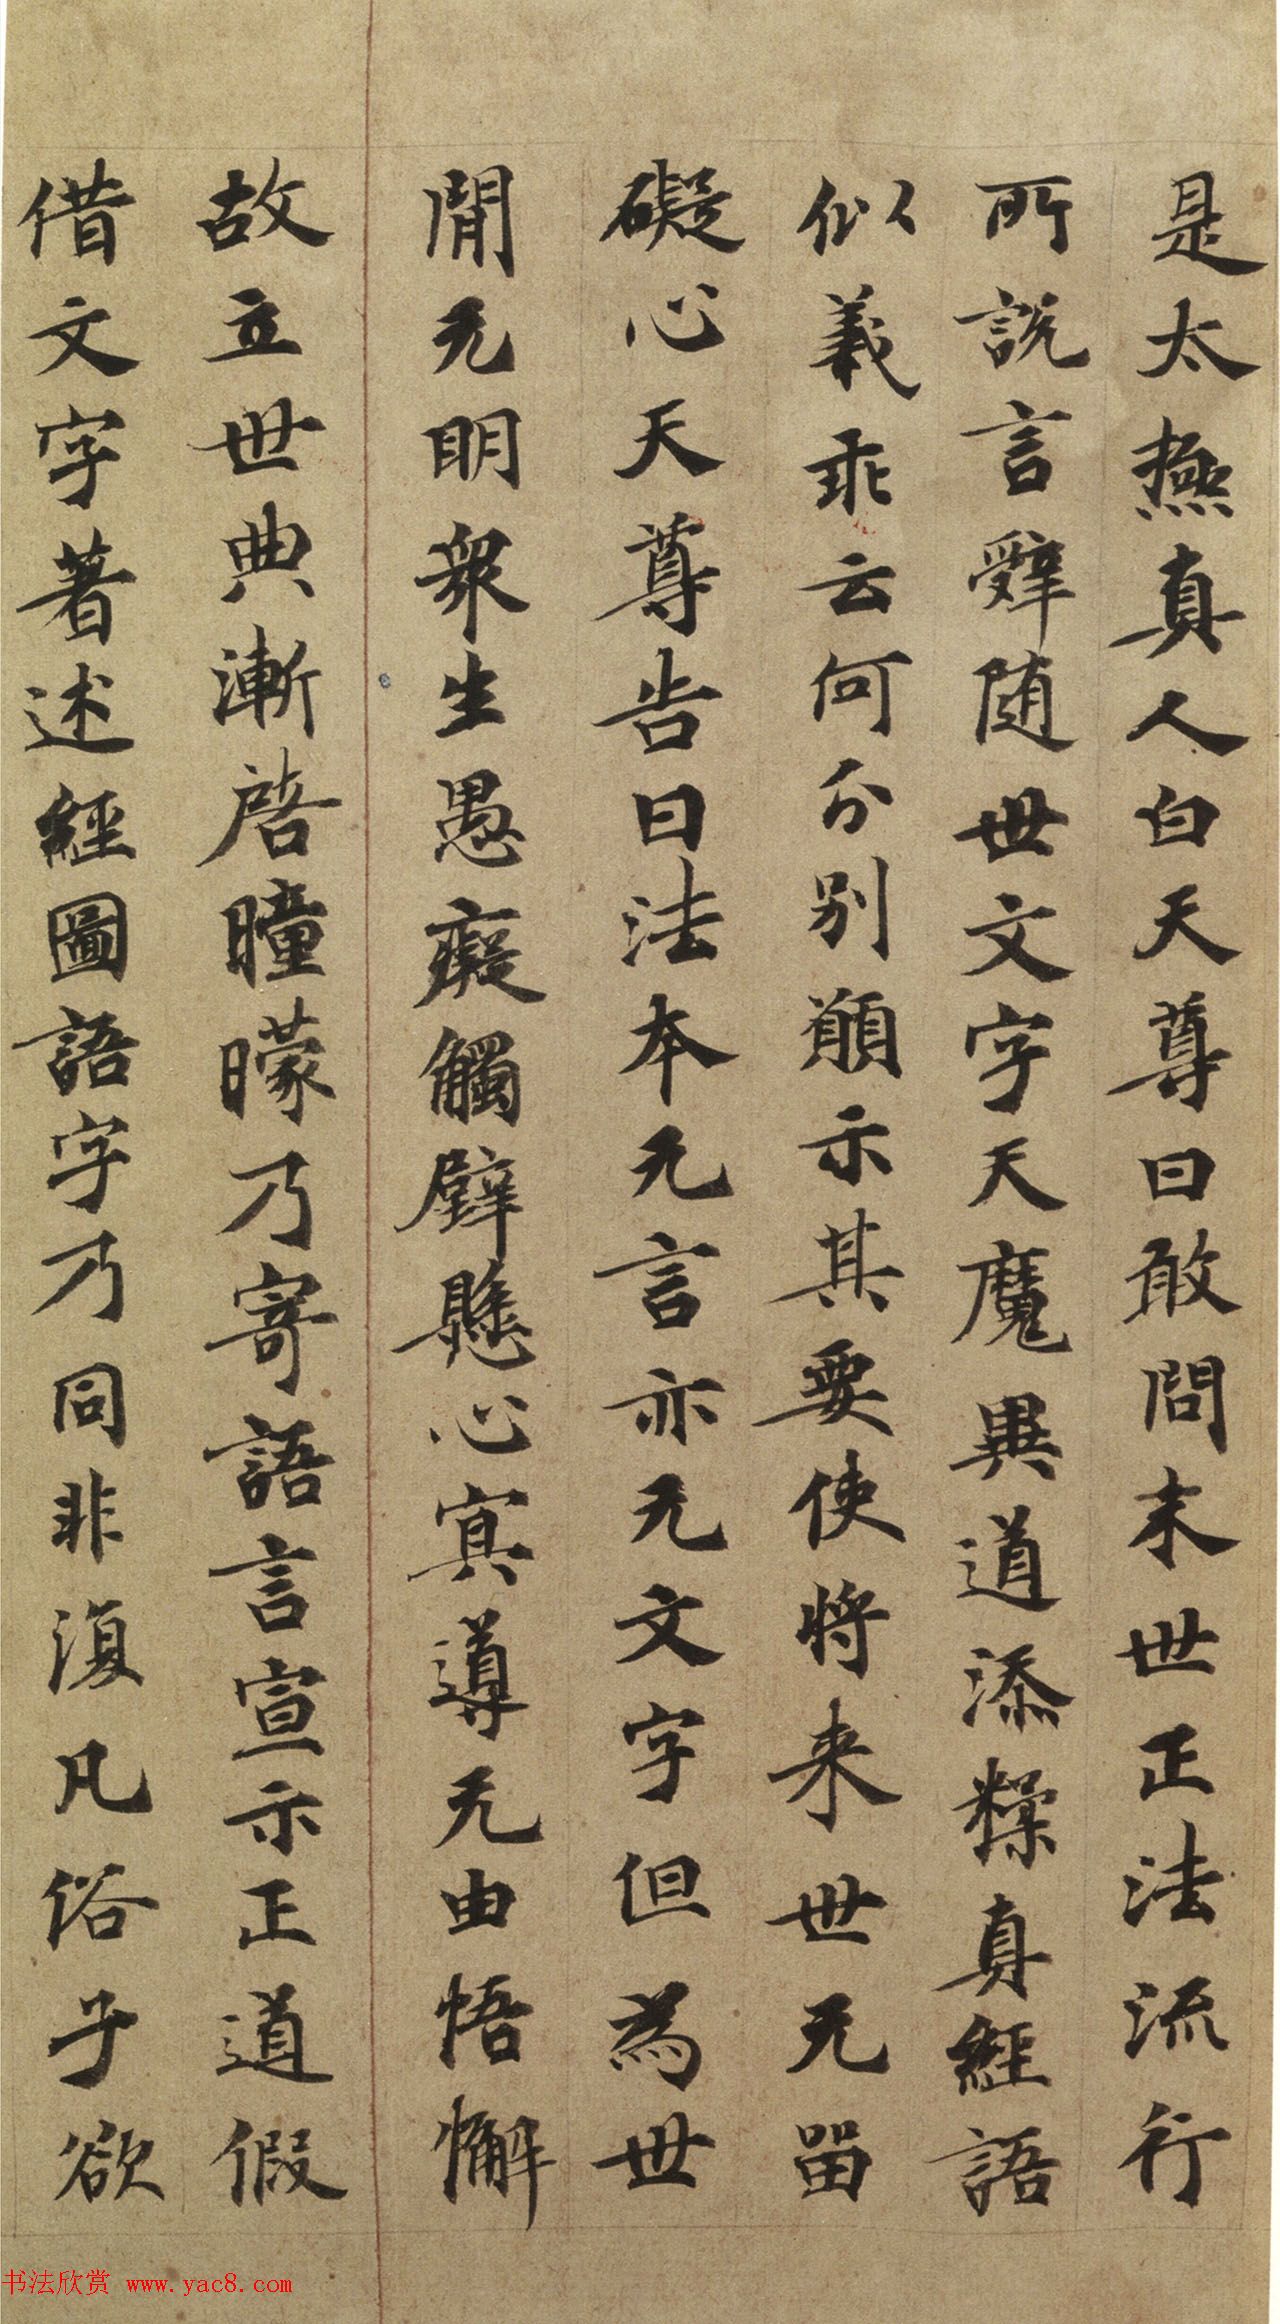 是太極真人白天尊曰敢問末世正法流行
所說言辭随世文字天魔異道添糅真經語
似義乖云何分別願示其要使將来世无留
礙心天尊告曰法本无言亦无文字但為世
間无明衆生愚癡觸壁懸心寘導无由悟懈
故立世典漸啓曈曚乃寄語言宣示正道假
借文字著述經圖語字乃同非復凡俗子欲
书法欣赏 www.yac8.com